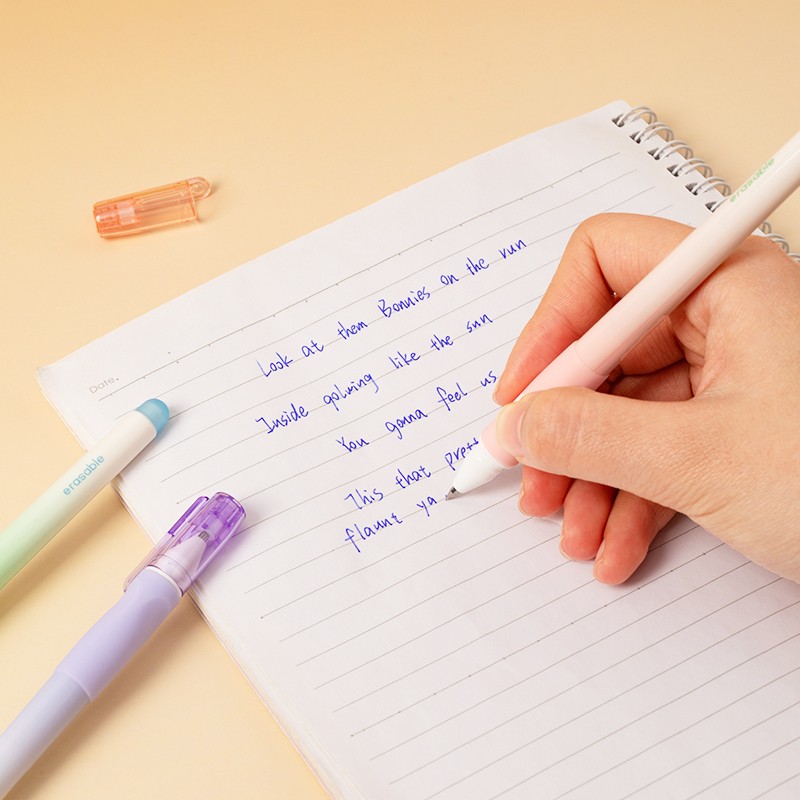 Date.
Look at them Bonnies on the run
Inside golving like the sun
You gonna feel us
This that prett
flaunt ya
erasable
erasable